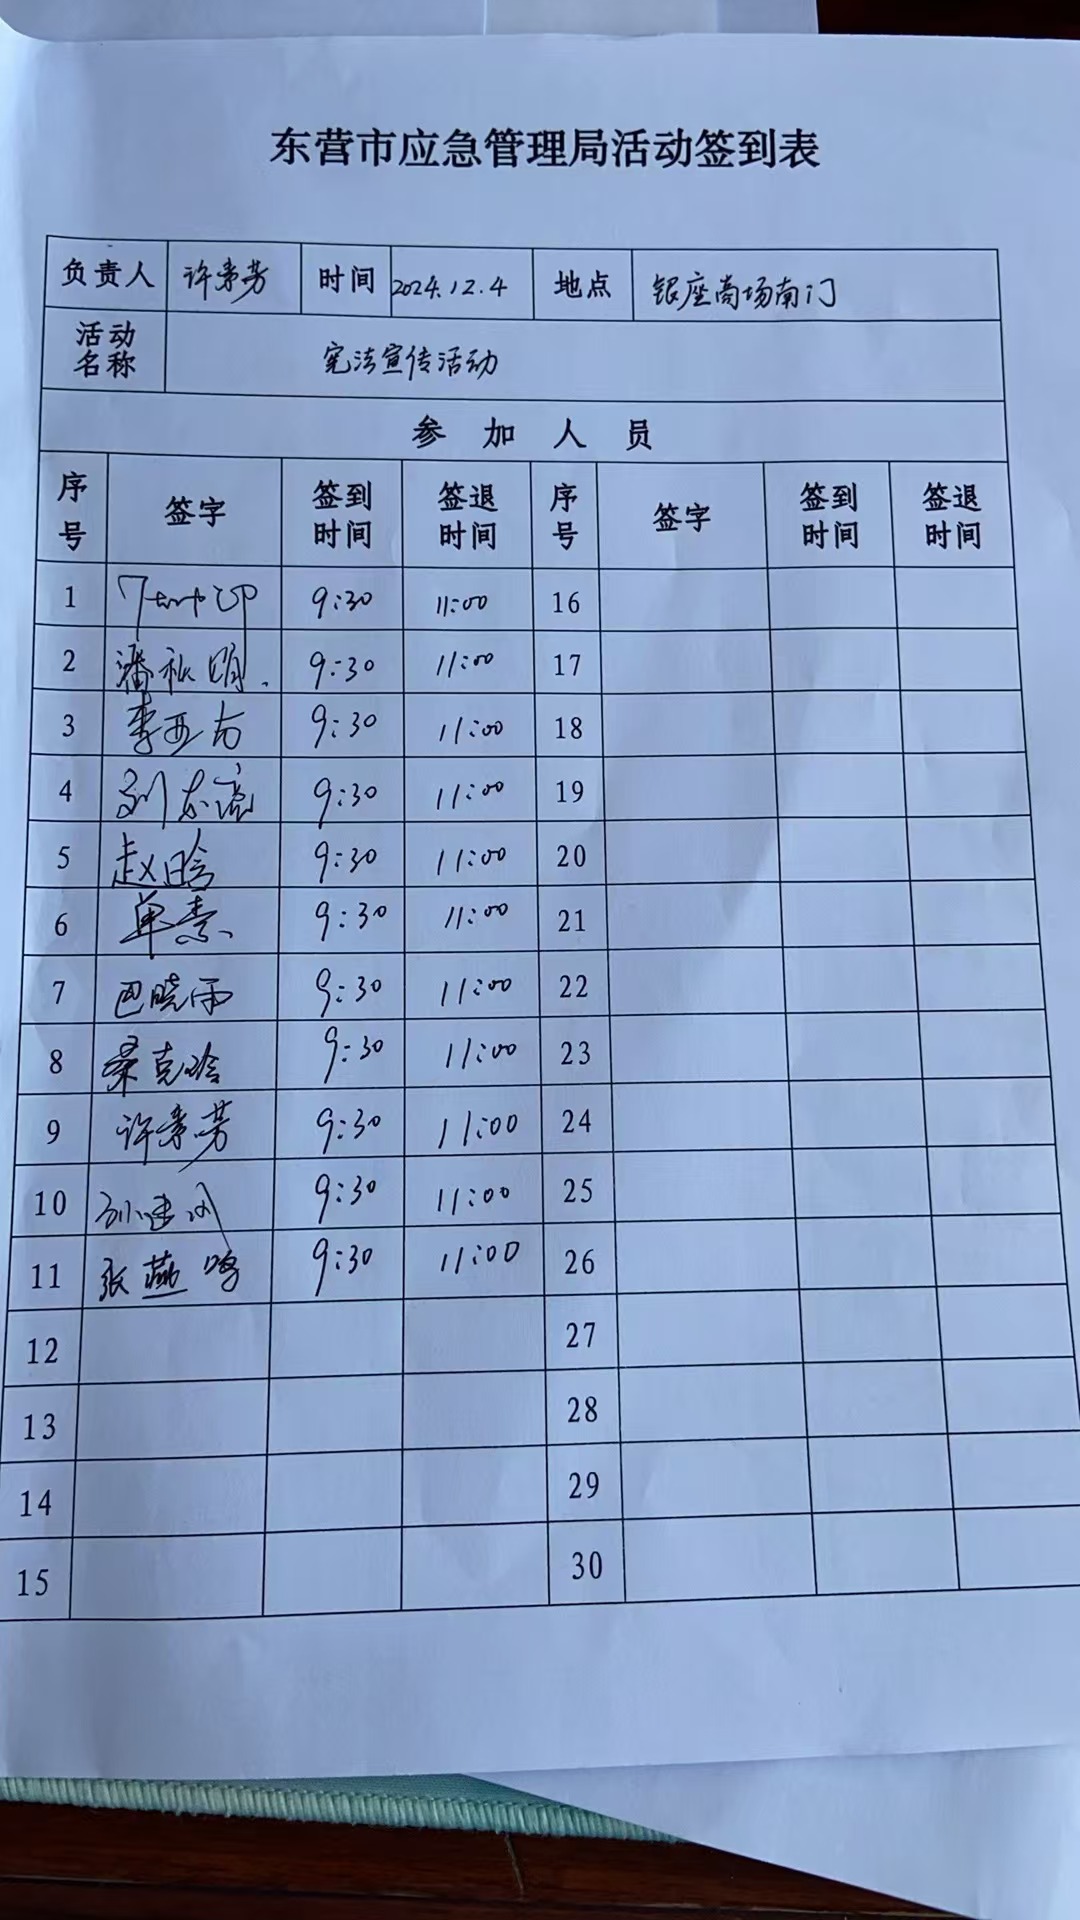 东营市应急管理局活动签到表
负责人 许秉芳 时间 2024.12.4 地点 银座商场南门
活动名称 宪法宣传活动
参加人员
序号 签字 签到时间 签退时间 序号 签字 签到时间 签退时间
1 9:30 11:00 16
2 潘 9:30 11:00 17
3 李亚方 9:30 11:00 18
4 刘东亮 9:30 11:00 19
5 赵晗 9:30 11:00 20
6 单 9:30 11:00 21
7 巴晓雨 9:30 11:00 22
8 桑克晗 9:30 11:00 23
9 许秉芳 9:30 11:00 24
10 孙建 9:30 11:00 25
11 张燕鸣 9:30 11:00 26
12 27
13 28
14 29
15 30